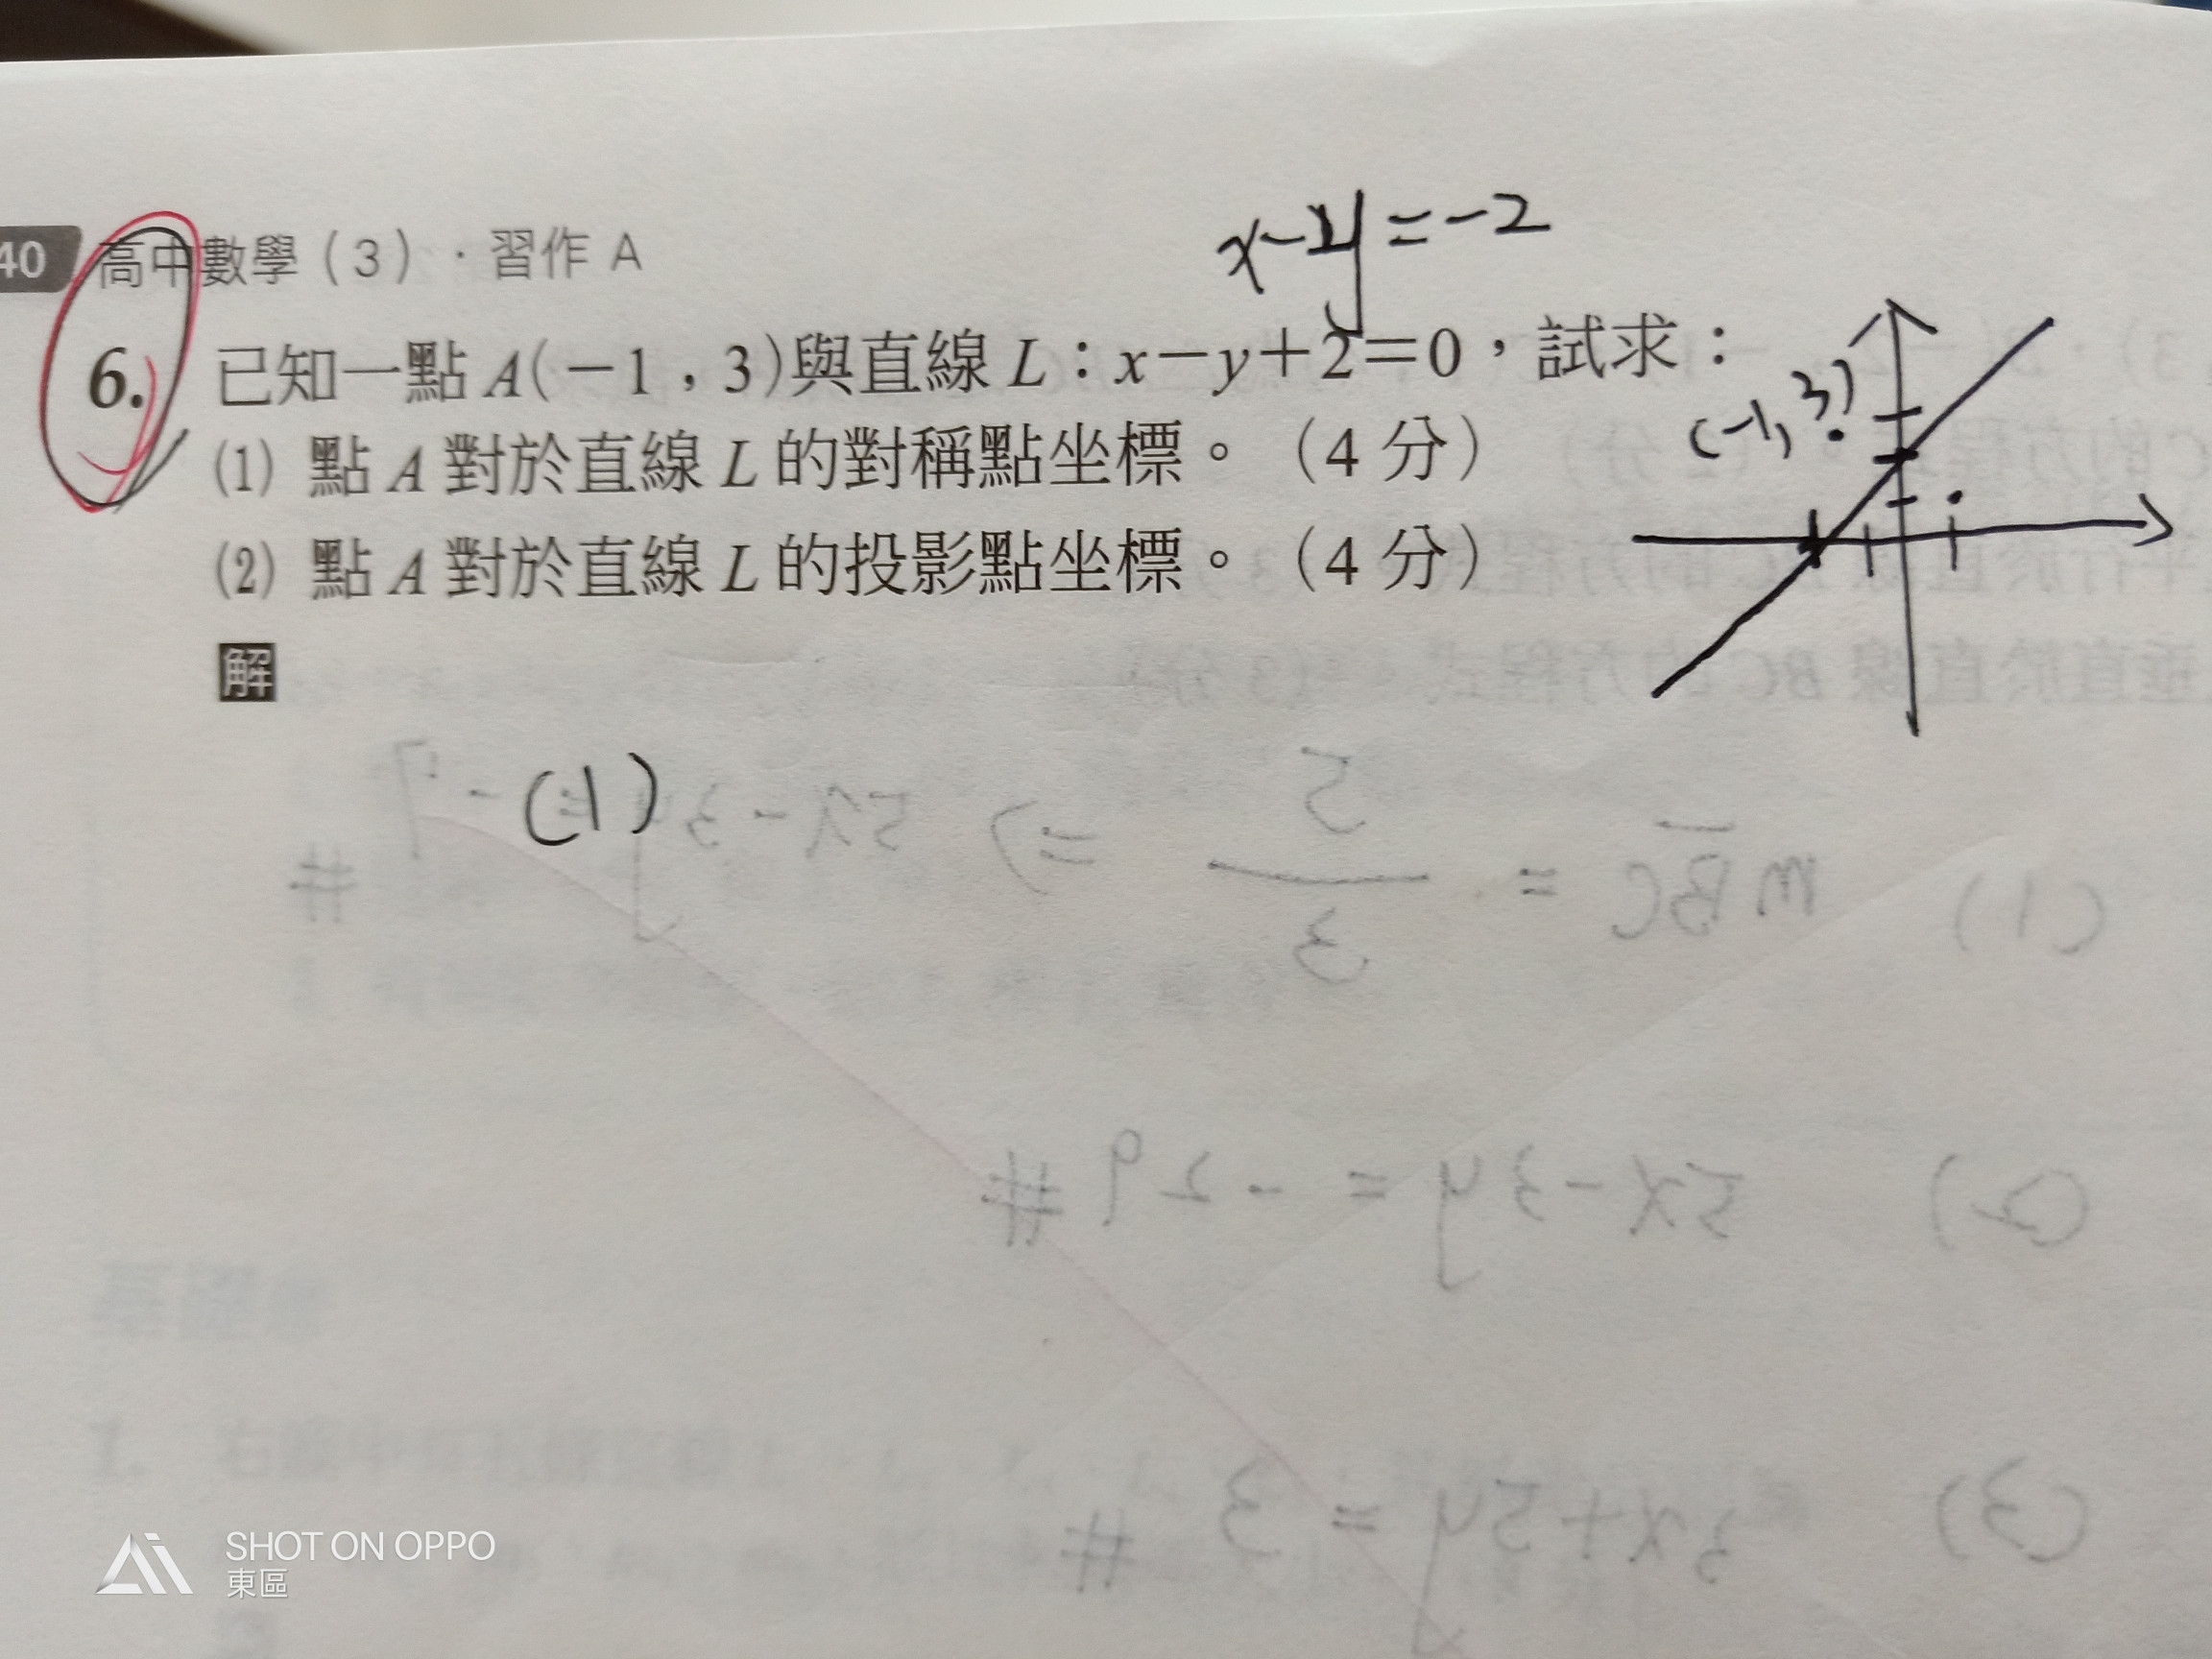 40 高中數學（3）．習作 A
x-y=-2
6. 已知一點 A(－1，3)與直線 L：x－y＋2＝0，試求：
(-1, 3)
(1) 點 A 對於直線 L 的對稱點坐標。（4 分）
(2) 點 A 對於直線 L 的投影點坐標。（4 分）
解
(1)
(1) mBC = 5/3 ⇒ 5x-3y=-7 #
(2) 5x-3y=-29 #
(3) 3x+5y=3 #
SHOT ON OPPO
東區